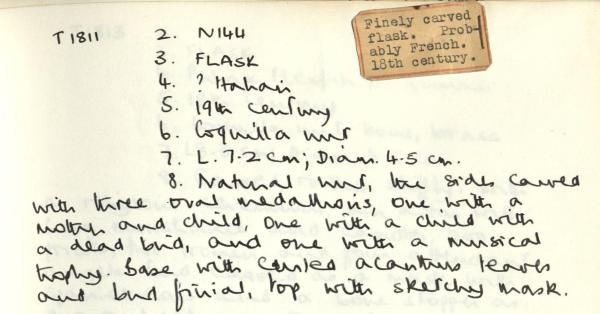 T1811
2. N144
3. FLASK
4. ? Italian
5. 19th century
6. Coquilla nut
7. L. 7.2 cm; Diam. 4.5 cm.
8. Natural nut, the sides carved
with three oval medallions, one with a
mother and child, one with a child with
a dead bird, and one with a musical
trophy. Base with curled acanthus leaves
and bud finial, top with sketchy mask.
Finely carved
flask. Prob-
ably French.
18th century.